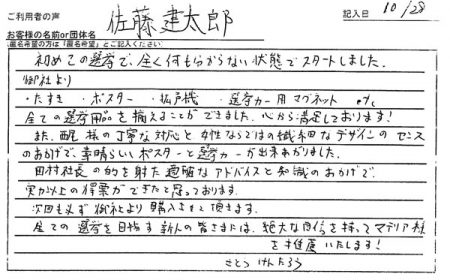 ご利用者の声
記入日 10/28
お客様の名前or団体名 佐藤建太郎
（匿名希望の方は「匿名希望」とご記入ください）
初めての選挙で、全く何も分からない状態でスタートしました。
御社より
・たすき ・ポスター ・拡声機 ・選挙カー用マグネット etc
全ての選挙用品を揃えることができました。心から満足しております!
また、西尾様の丁寧な対応と女性ならではの繊細なデザインのセンス
のおかげで、素晴らしいポスターと選挙カーが出来あがりました。
田村社長の的を射た適確なアドバイスと知識のおかげで、
実力以上の得票ができたと思っております。
次回も必ず御社より購入させて頂きます。
全ての選挙を目指す新人の皆さまには、絶大な自信を持ってマテリア様
を推薦いたします!
さとう けんたろう